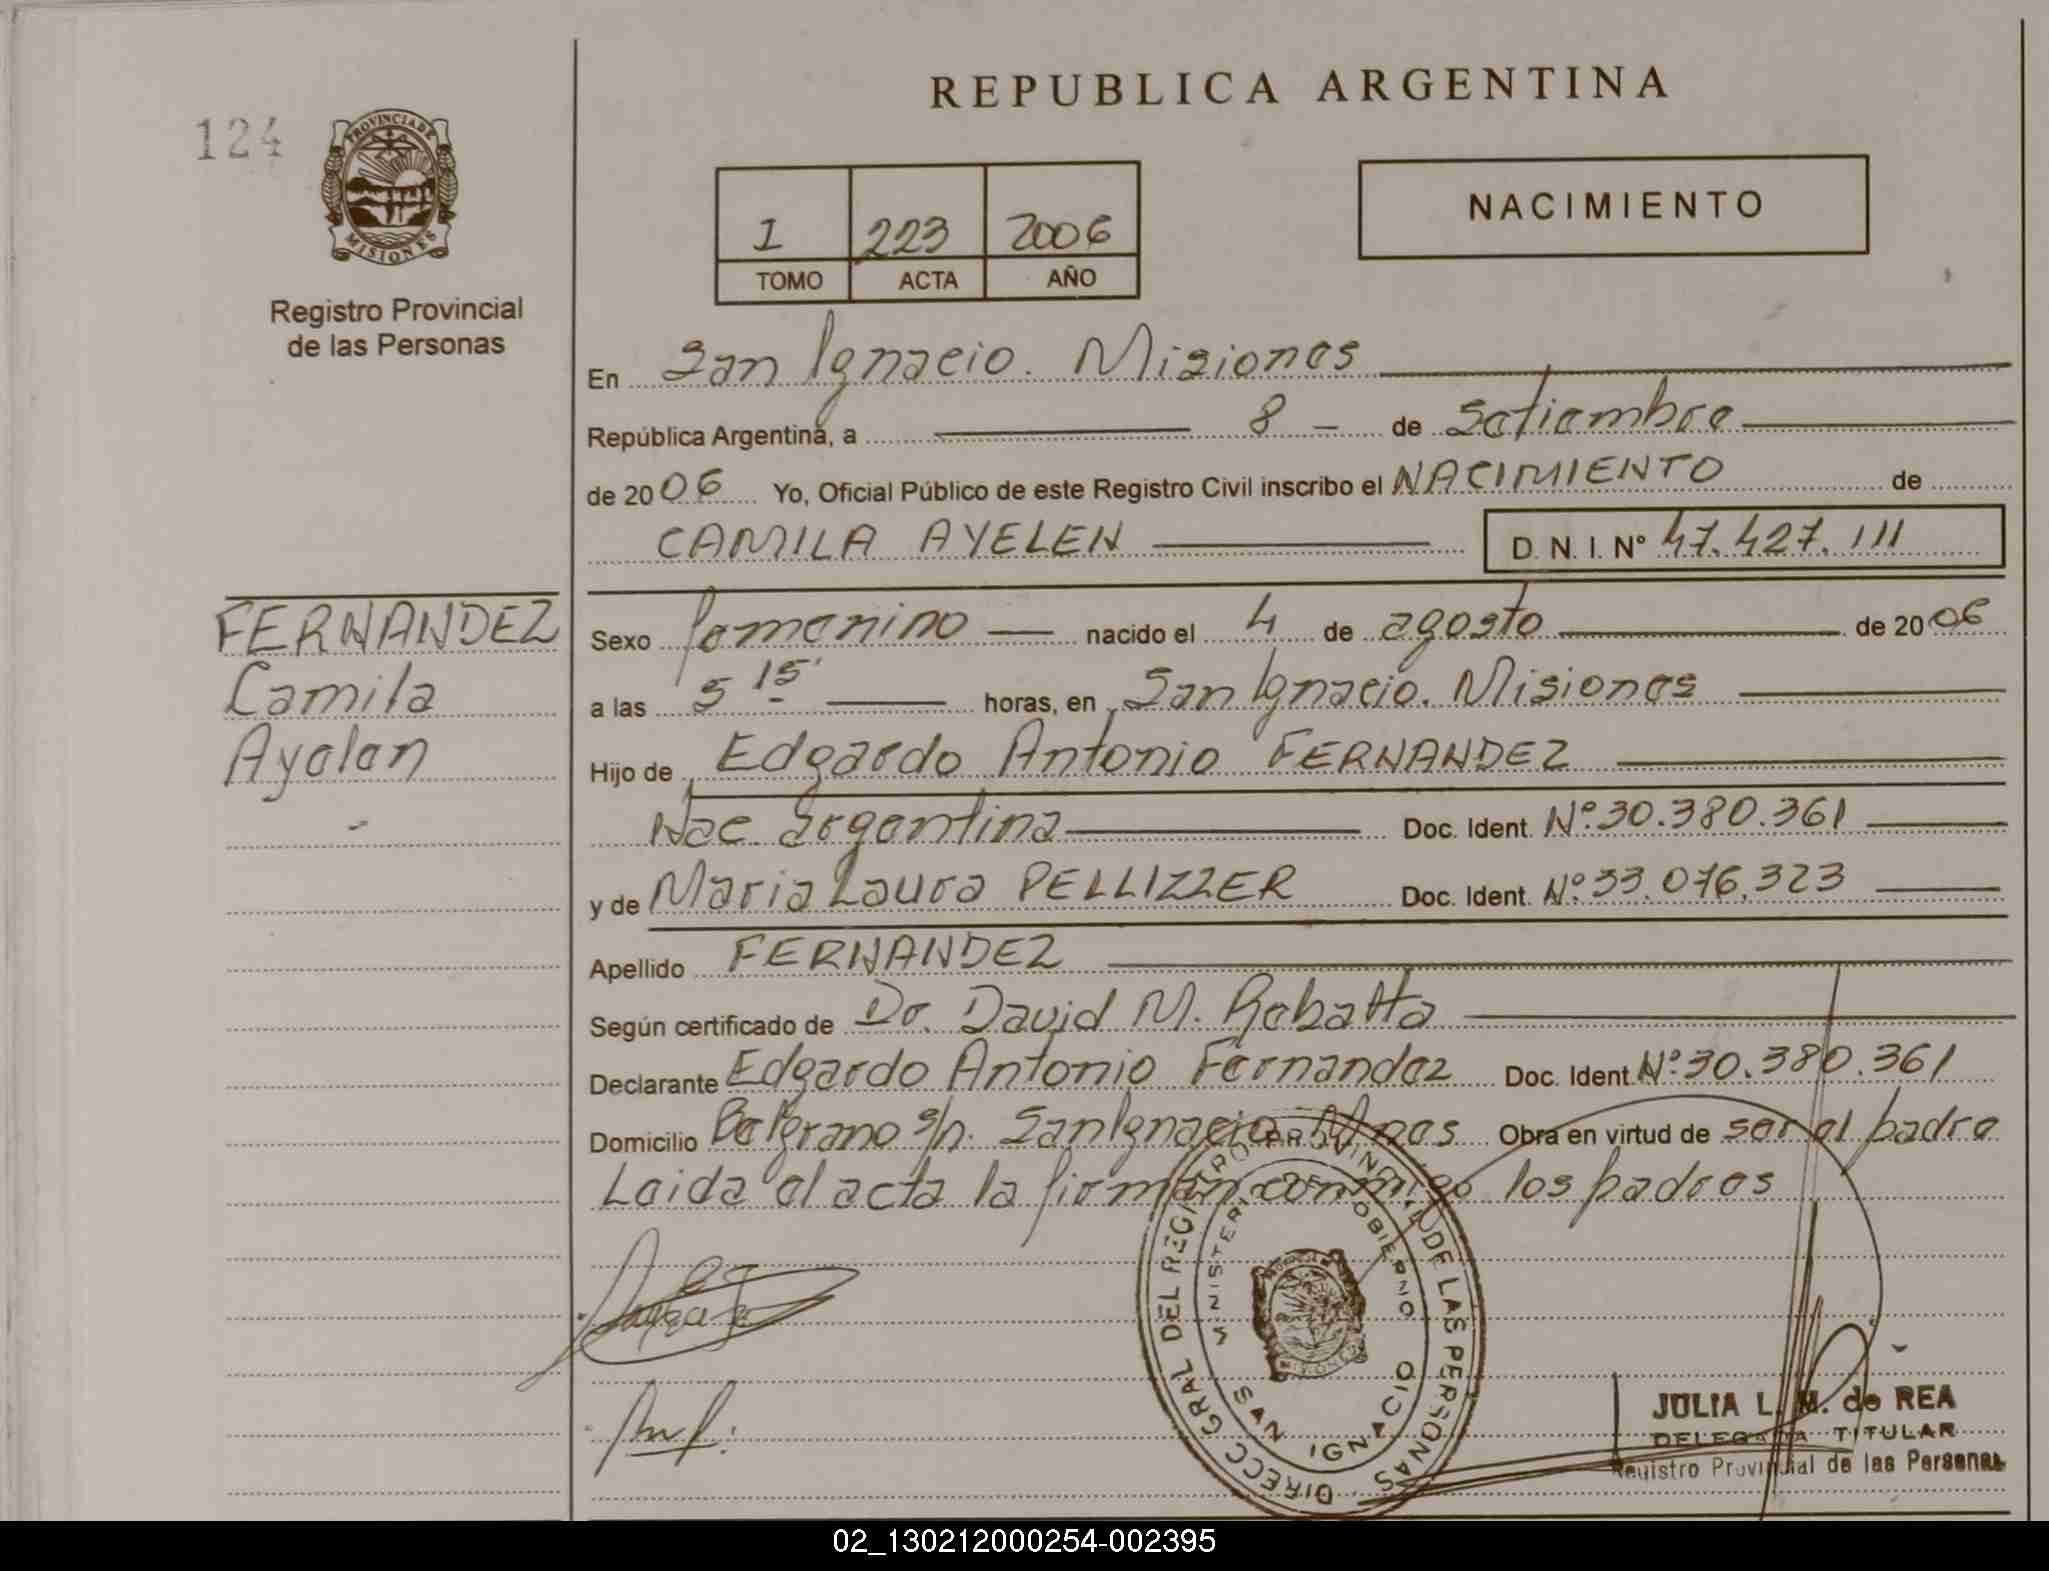 REPUBLICA ARGENTINA
124
PROVINCIA DE MISIONES
Registro Provincial
de las Personas
1 223 2006
TOMO ACTA AÑO
NACIMIENTO
En San Ignacio. Misiones
República Argentina, a 8 - de Setiembre
de 2006 Yo, Oficial Público de este Registro Civil inscribo el NACIMIENTO de
CAMILA AYELEN D. N. I. Nº 47.427.111
FERNANDEZ
Camila
Ayelen
Sexo femenino nacido el 4 de agosto de 2006
a las 5 15' horas, en San Ignacio. Misiones
Hijo de Edgardo Antonio FERNANDEZ
Nac. argentina Doc. Ident. Nº 30.380.361
y de Maria Laura PELLIZZER Doc. Ident. Nº 33.076.323
Apellido FERNANDEZ
Según certificado de Dr. David M. Robatta
Declarante Edgardo Antonio Fernandez Doc. Ident. Nº 30.380.361
Domicilio Belgrano s/n. San Ignacio Mnes Obra en virtud de ser el padre
Leida el acta la firman conmigo los padres
DIRECC GRAL DEL REGISTRO PROVINCIAL DE LAS PERSONAS
MINISTERIO DE GOBIERNO
SAN IGNACIO
JULIA L. M. de REA
DELEGADA TITULAR
Registro Provincial de las Personas
02_130212000254-002395